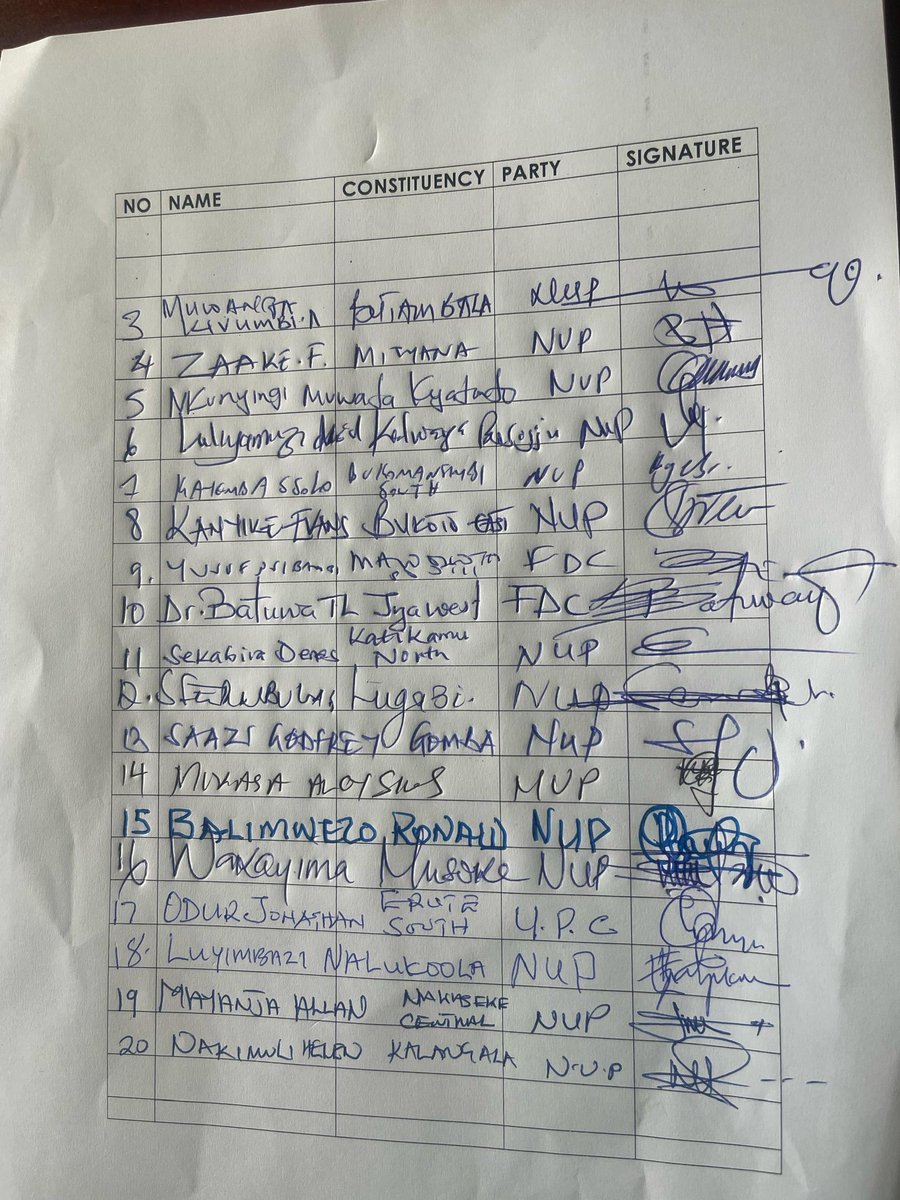 NO NAME CONSTITUENCY PARTY SIGNATURE
3 MUWANGA KIVUMBI.A BUTAMBALA NUP
4 ZAAKE.F. MITYANA NUP
5 Nkunyingi Muwada Kyadondo NUP
6 Lulyamuzi NUP
7 KATEMBA BUKOMANSIMBI SOUTH NUP
8 KANYIKE EVANS BUKOTO EAST NUP
9. FDC
10 Dr. Batuwa TL Jinja West FDC
11 Sekabira Denes Katikamu North NUP
12. NUP
13 SAAZI GODFREY GOMBA NUP
14 MUKASA ALOYSIUS NUP
15 BALIMWEZO RONALD NUP
16 Wakayima Musoke NUP
17 ODUR JONATHAN ERUTE SOUTH U.P.C
18. LUYIMBAZI NALUKOOLA NUP
19 MAYANJA ALLAN NAKASEKE CENTRAL NUP
20 NAKIMULI HELEN KALANGALA N.U.P